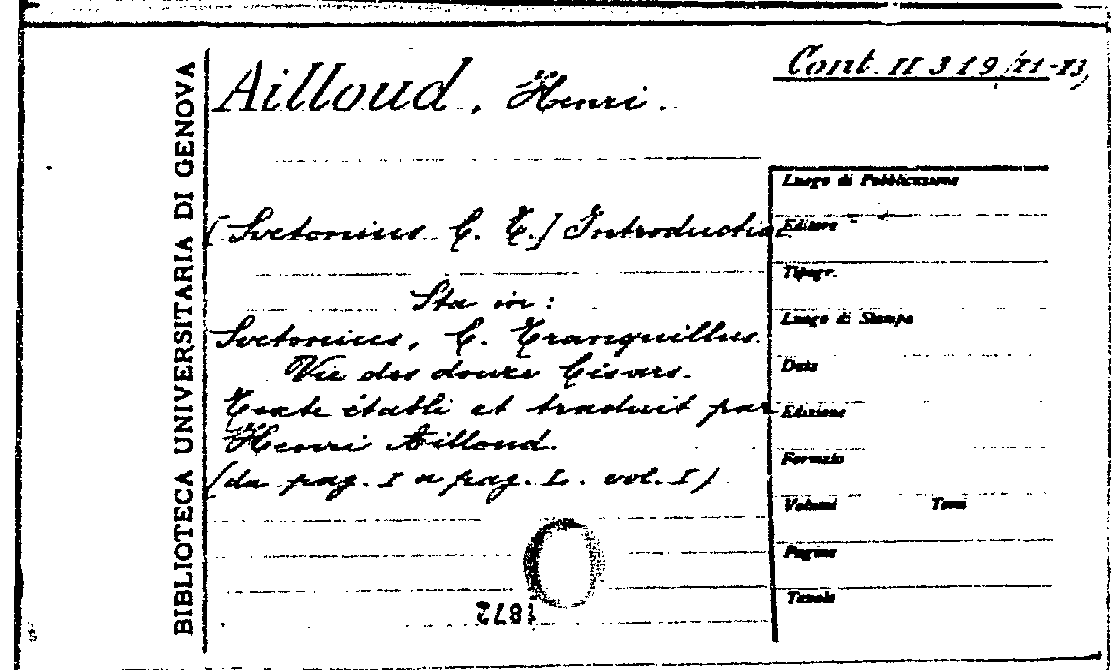 Cont. II 3 19/11-13
Ailloud, Henri.
BIBLIOTECA UNIVERSITARIA DI GENOVA
[Svetonius C. T.] Introduction
Sta in:
Svetonius, C. Tranquillus.
Vie des douze Césars.
Texte établi et traduit par
Henri Ailloud.
(da pag. I a pag. L. vol. I)
Luogo di Pubblicazione
Editore
Tipogr.
Luogo di Stampa
Data
Edizione
Formato
Volumi Tomi
Pagine
Tavole
1872